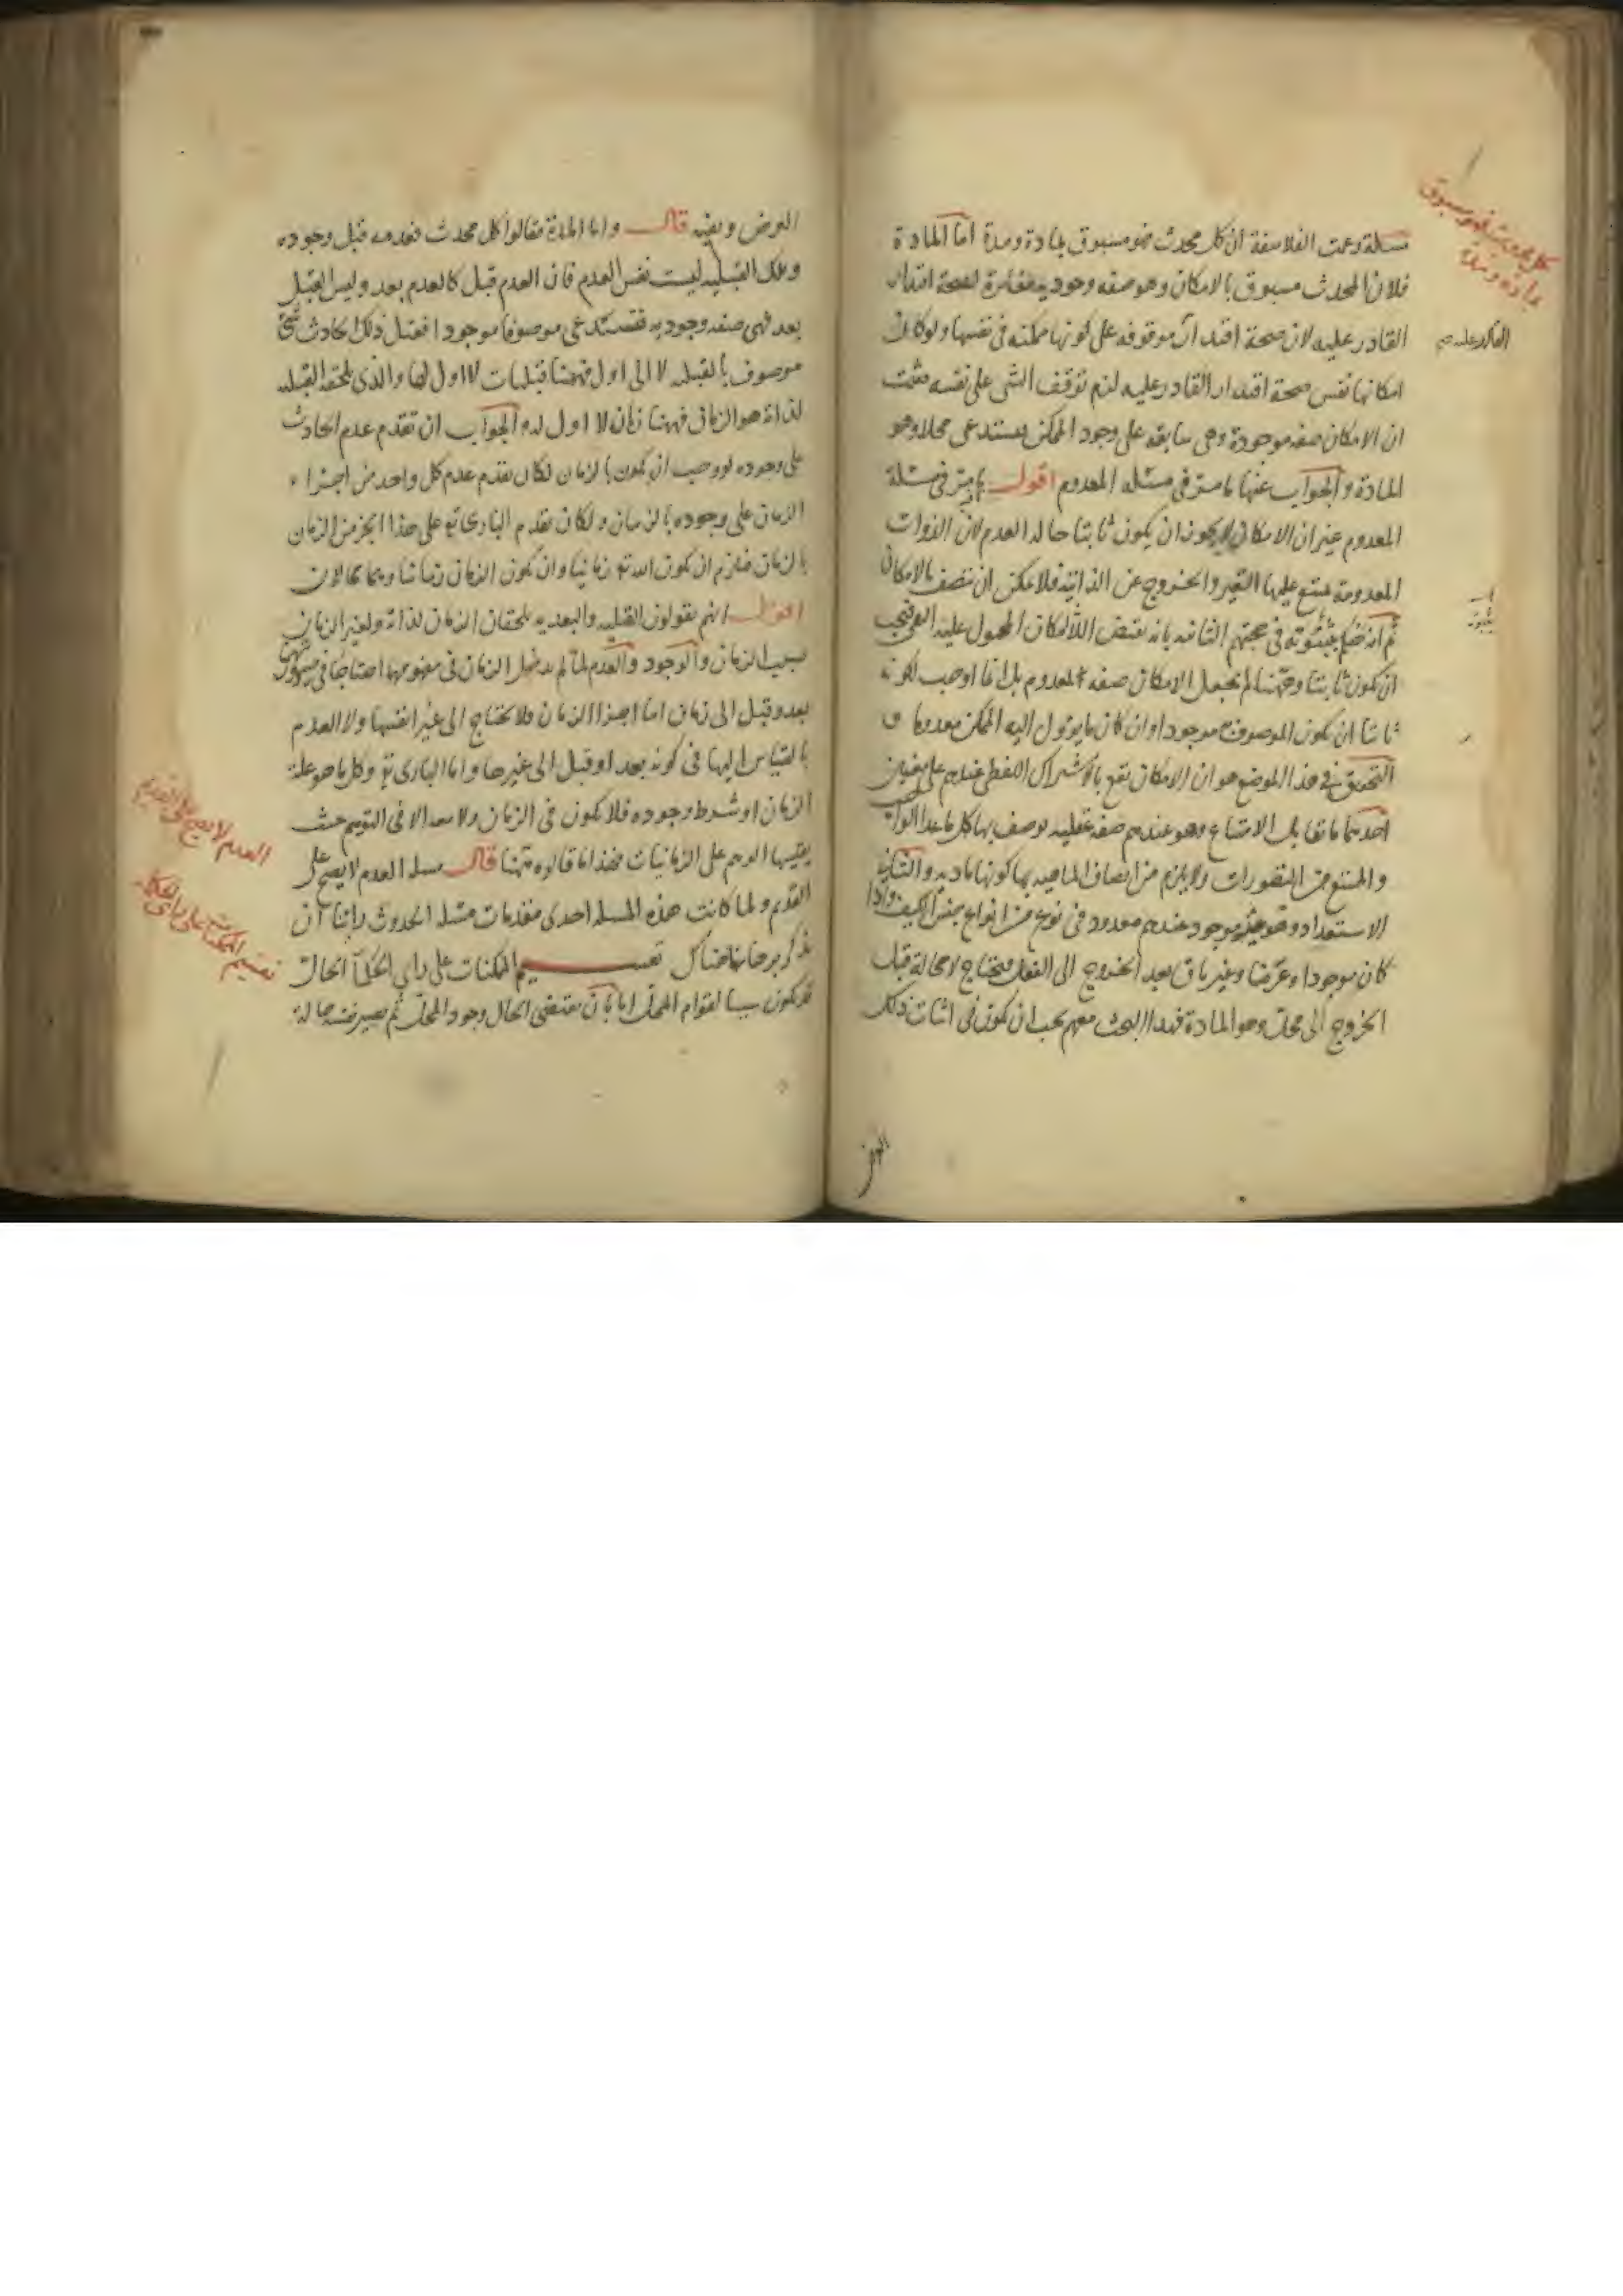 مسئلة زعمت الفلاسفة ان كل محدث فهو مسبوق بمادة ومدة اما المادة
فلان المحدث مسبوق بالامكان وهو صفه وجوديه مغايرة لصحة اقتدار
القادر عليه لان صحة اقتداره موقوفه على كونها ممكنه في نفسها ولو كان
امكانها نفس صحة اقتدار القادر عليه لزم توقف الشى على نفسه فثبت
ان الامكان صفه موجودة وهى سابقه على وجود الممكن فيستدعى محلا وهو
المادة والجواب عنها ما مر في مسئله المعدوم اقول ما مر في مسئلة
المعدوم عند ان الامكان لا يجوز ان يكون ثابتا حالة العدم لان الذوات
المعدومة ممتنع عليها التغير والخروج عن الذاتية فلا يمكن ان تتصف بالامكان
ثم انه حكم بثبوته في حجتهم الثانيه بانه نقيض اللاامكان المحمول عليه النفى فيجب
ان يكون ثابتا وههنا لم نجعل الامكان صفه للمعدوم بل انما اوجب لكونه
ثابتا ان يكون الموصوف به موجودا وان كان ما يؤول اليه الممكن معدوما و
التحقيق في هذا الموضع هو ان الامكان يقع بالاشتراك اللفظى عندهم على معنيين
احدهما ما يقابل الامتناع وهو عندهم صفه عقليه يوصف بها كل ما عدا الواجب
والممتنع من المتصورات ولا يلزم من اتصاف الماهيه بها كونها ماديه والثانى
الاستعداد وهو موجود عندهم معدود في نوع من انواع جنس الكيف واذا
كان موجودا وعرضا وغير باق بعد الخروج الى الفعل فيحتاج لا محالة قبل
الخروج الى محل وهو المادة فهذا البحث معهم يجب ان يكون في اثبات ذلك
العرض
كل محدث فهو مسبوق
بمادة ومدة
العرض ونفيه قال واما المدة فقالوا كل محدث فعدمه قبل وجوده
وتلك القبليه ليست نفس العدم فان العدم قبل كالعدم بعد وليس القبل
بعد فهى صفه وجوديه فتستدعى موصوفا موجودا فقبل ذلك الحادث شئ
موصوف بالقبليه لا الى اول فههنا قبليات لا اول لها والذى يلحقه القبليه
لذاته هو الزمان فههنا زمان لا اول له والجواب ان تقدم عدم الحادث
على وجوده لو وجب ان يكون بالزمان لكان تقدم عدم كل واحد من اجزاء
الزمان على وجوده بالزمان ولكان تقدم البارى تع على هذا الجزء من الزمان
بالزمان فيلزم ان يكون الله تع زمانيا وان يكون الزمان زمانيا وهما محالان
اقول انهم يقولون القبليه والبعديه يلحقان الزمان لذاته ولغير الزمان
بسبب الزمان والوجود والعدم لما لم يدخل الزمان في مفهومهما احتاجا في صيرورتهما
بعد وقبل الى زمان اما اجزاا الزمان فلا يحتاج الى غير انفسها ولا العدم
بالقياس اليها في كونه بعد او قبل الى غيرها واما البارى تع وكل ما هو علة
الزمان او شرط وجوده فلا يكون في الزمان ولا معه الا في التوهم حيث
يقيسها الوهم على الزمانيات فهذا ما قالوه ههنا قال مسله العدم لا يصح على
القديم ولما كانت هذه المسله احدى مقدمات مسئله الحدوث راينا ان
نذكر برهانها هناك تقسيم الممكنات على راى الحكماء الحال
قد يكون سببا لقوام المحل اما بان يقتضى الحال وجود المحل ثم يصير نفسه حالة
العدم لا يصح على القديم
تقسيم الممكنات على راى الحكماء